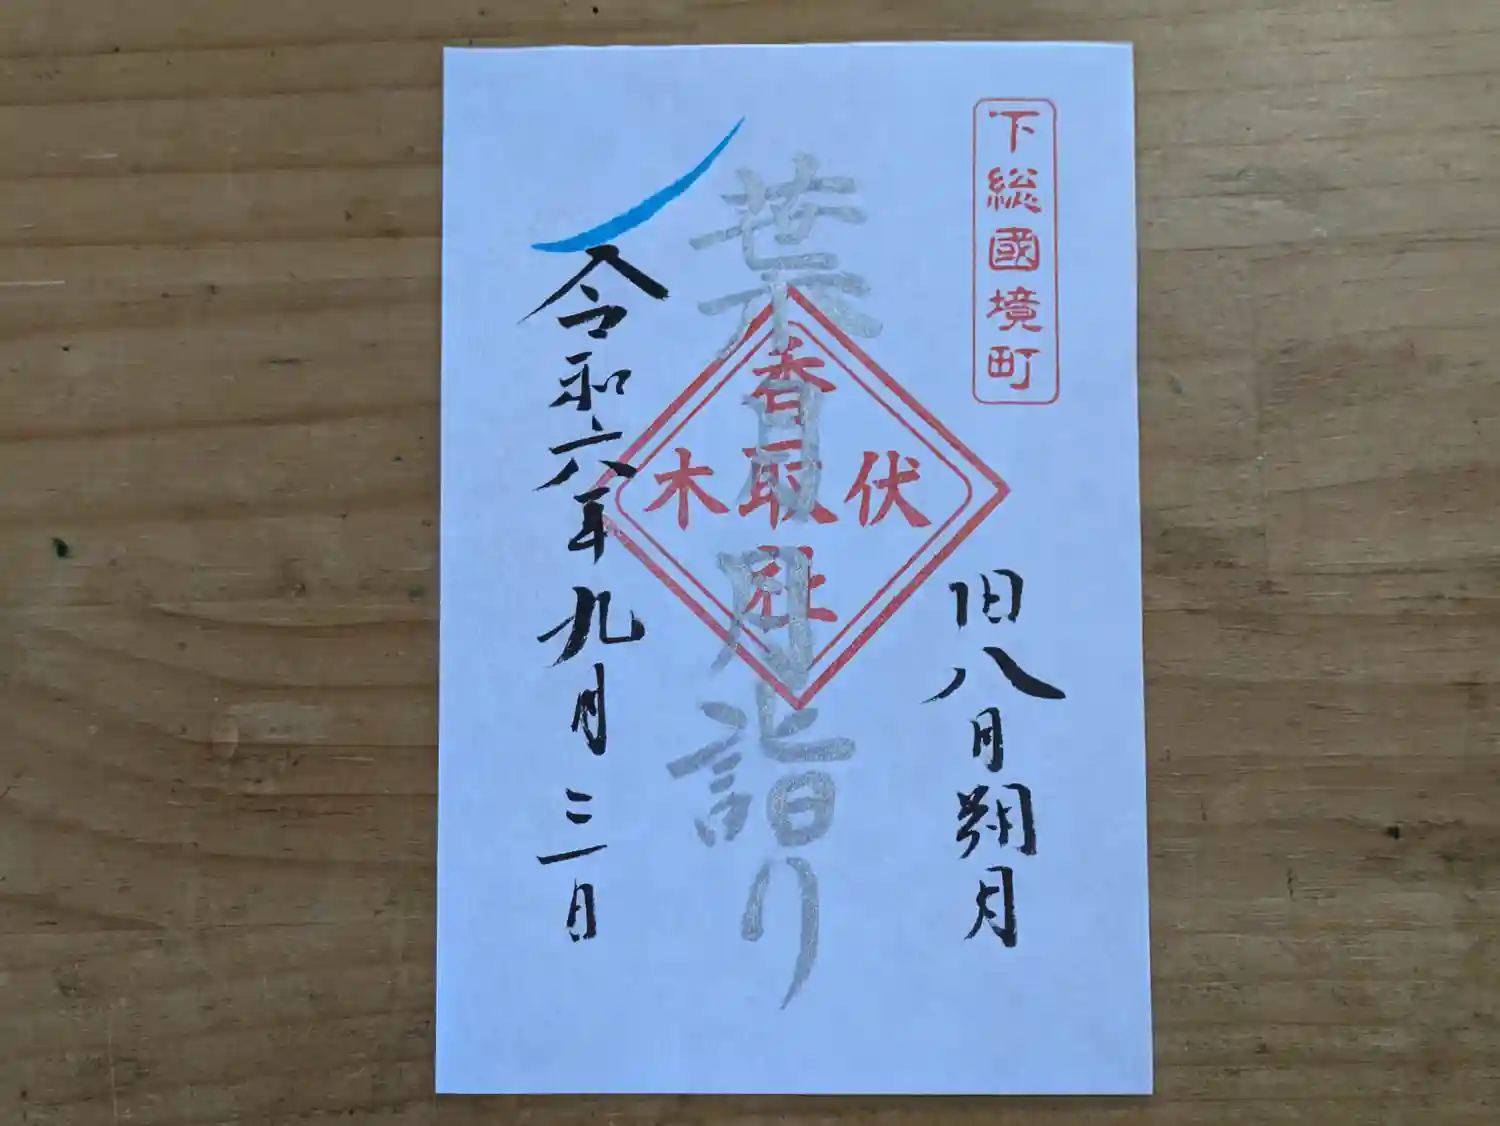 下総國境町
旧八月朔月
葉月月詣り
伏木
香取社
令和六年九月三日